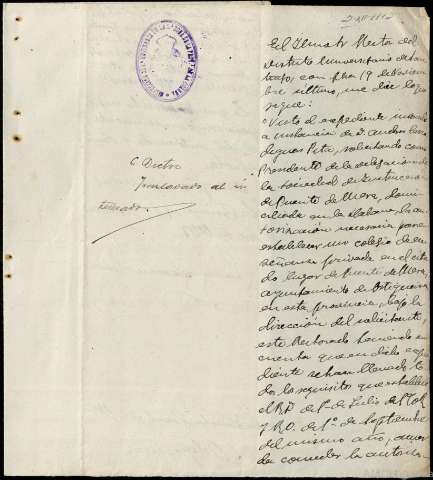 C Dector
Trasladado al in
teresado.
El Ilmo Sr Rector del
Distrito Universitario de San
tiago, con fha 19 de Noviem
bre último, me dice lo que
sigue:
"Visto el expediente incoado
a instancia de D. Andrés
Pita, solicitando como
Presidente de la delegación de
la sociedad de Instrucción
de Puente de Mera, domi
ciliada en la Habana, la au
torización necesaria para
establecer un colegio de en
señanza privada en el cita
do lugar de Puente de Mera,
ayuntamiento de Ortigueira
en esta provincia, bajo la
dirección del solicitante,
este Rectorado teniendo en
cuenta que en dicho expe
diente se han llenado to
dos los requisitos que establece
el R.D. de 1º de Julio de 1902
y R.O. de 1º de Septiembre
del mismo año, acuer
da conceder la autoriza-